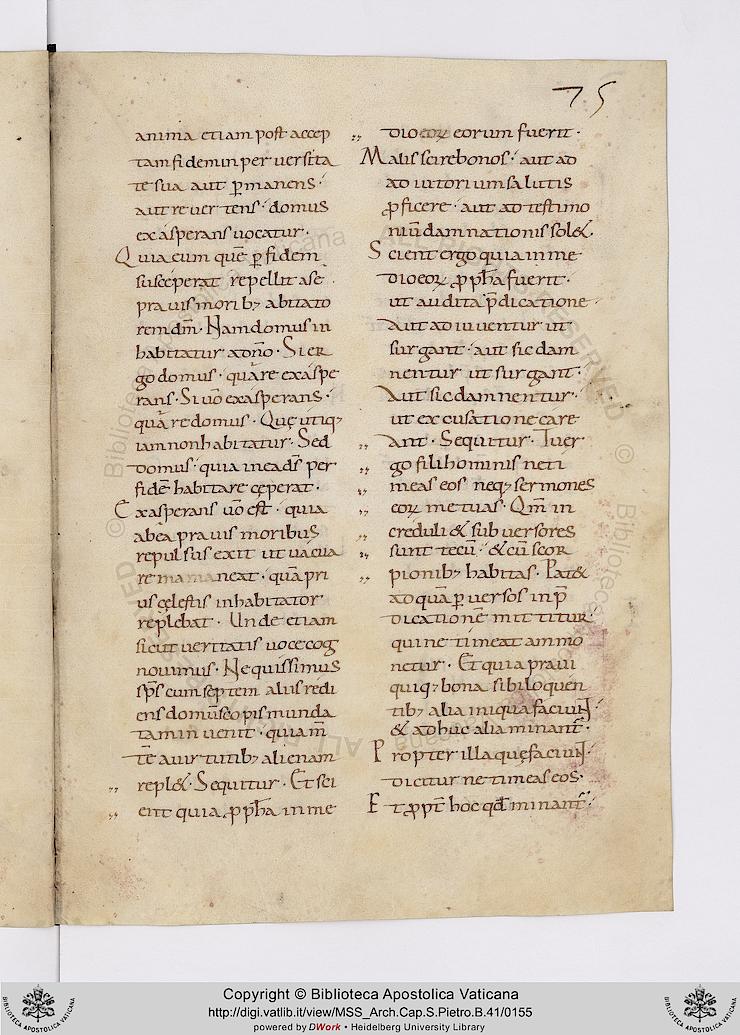 75
anima etiam post accep
tam fidem in perversita
te sua aut p̄manens·
aut revertens· domus
exasperans vocatur·
Quia eum quē p̄ fidem
susceperat repellit a se·
pravis morib; abitato
rem dm̄· Nam domus in
habitatur a dn̄o· Si er
go domus· quare exaspe
rans· Si vō exasperans·
quare domus· Quę utiq;
iam non habitatur· Sed
domus· quia in ea ds̄ per
fidē habitare cęperat·
Exasperans vō est· quia
ab ea pravis moribus
repulsus exit ut vacua
remamaneat· quā pri
us cęlestis inhabitator
replebat· Unde etiam
sicut veritatis voce cog
novimus· Nequissimus
sps̄ cum septem aliis redi
ens domū scopis munda
tam invenit· quia m̄
tē a virtutib; alienam
repl&· Sequitur· Et sci
ent quia ꝓph̄a in me
dio eoꝝ eorum fuerit·
Malis scire bonos· aut ad
adiutorium salutis
ꝓficere· aut ad testimo
niū damnationis sol&·
Scient ergo quia in me
dio eoꝝ ꝓph̄a fuerit·
ut audita p̄dicatione·
Aut adiuventur ut
surgant· aut sic dam
nentur ut surgant·
Aut sic damnentur·
ut excusatione care
ant· Sequitur· Tu er
go fili hominis ne ti
meas eos neq; sermones
eoꝝ metuas· Qm̄ in
creduli & subversores
sunt tecū· & cū scor
pionib; habitas· Pat&
ad quā pversos in p̄
dicationē mittitur
qui ne timeat ammo
netur· Et quia pravi
quiq; bona sibi loquen
tib; alia iniqua faciunt
& adhuc alia minant̄·
Propter illa quę faciunt·
dicitur ne timeas eos·
Et ꝓpt̄ hoc qđ minant̄·
Copyright © Biblioteca Apostolica Vaticana
http://digi.vatlib.it/view/MSS_Arch.Cap.S.Pietro.B.41/0155
powered by DWork • Heidelberg University Library